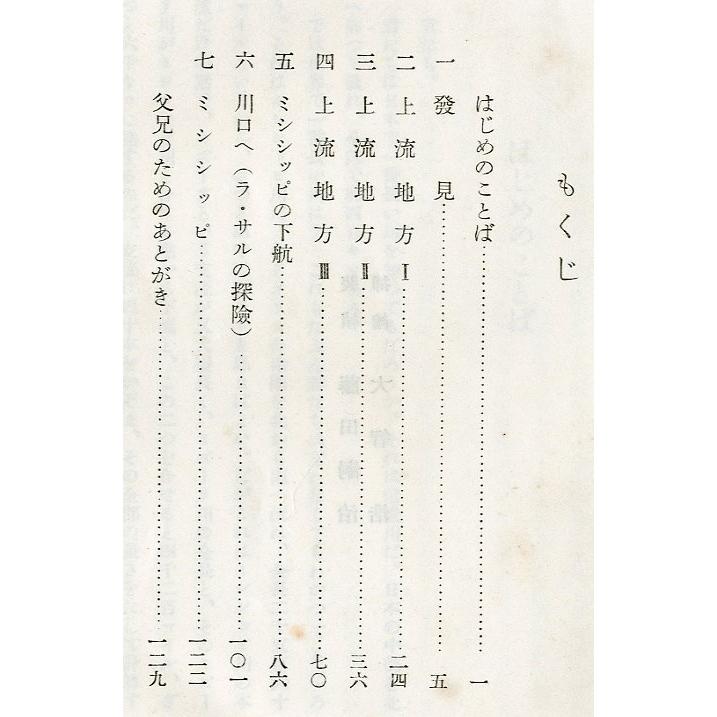 もくじ
はじめのことば……………一
一 發見……………五
二 上流地方Ⅰ……………二四
三 上流地方Ⅱ……………三六
四 上流地方Ⅲ……………七〇
五 ミシシッピの下航……………八六
六 川口へ(ラ・サルの探險)……………一〇一
七 ミシシッピ……………一二二
父兄のためのあとがき……………一二九